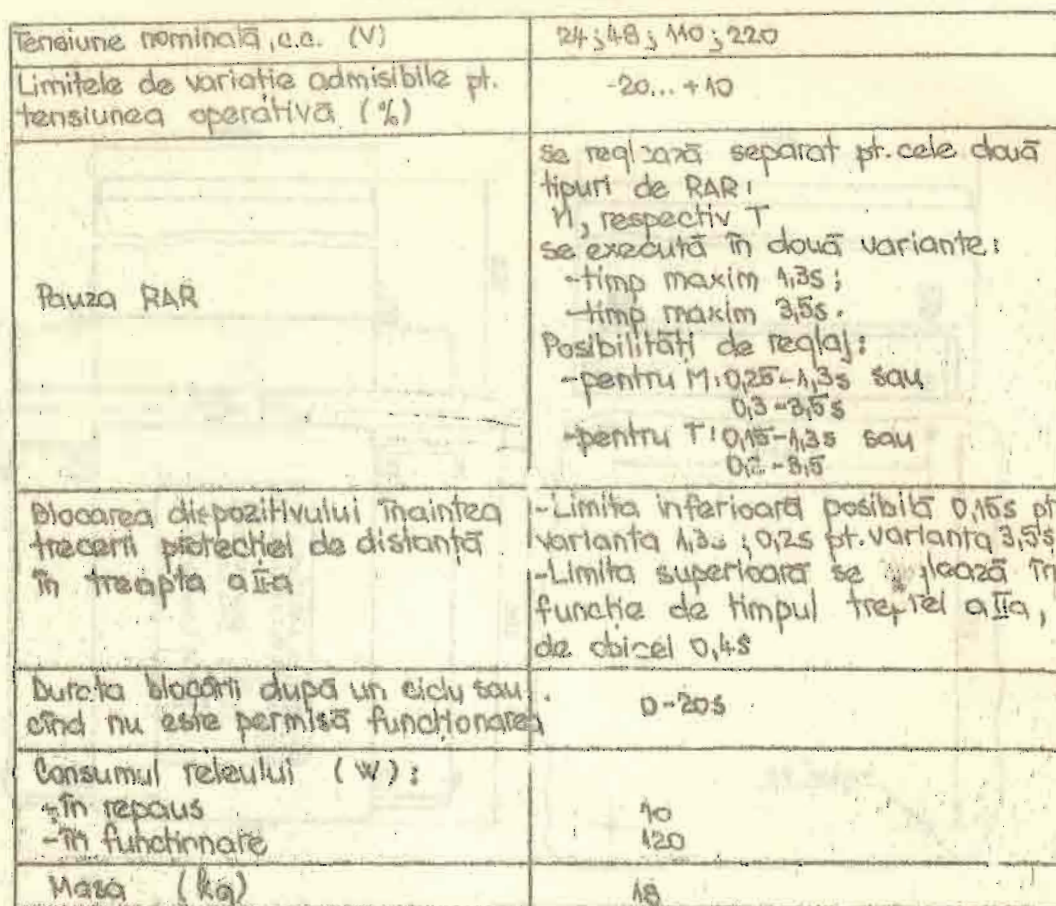 Tensiune nominală, c.c. (V)
24; 48; 110; 220
Limitele de variatie admisibile pt.
tensiunea operativă (%)
-20... +10
Pauza RAR
se reglează separat pt. cele două
tipuri de RAR:
M, respectiv T
se execută în două variante:
-timp maxim 1,3s;
-timp maxim 3,5s.
Posibilități de reglaj:
-pentru M: 0,25-1,3s sau
0,3-3,5s
-pentru T: 0,15-1,3s sau
0,2-3,5
Blocarea dispozitivului înaintea
trecerii protecției de distanță
în treapta a IIa
-Limita inferioară posibilă 0,15s pt
varianta 1,3s; 0,2s pt. varianta 3,5s
-Limita superioară se în
funcție de timpul treptei a IIa,
de obicei 0,4s
Durata blocării după un ciclu sau
cînd nu este permisă funcționarea
0-20s
Consumul releului (W):
-în repaus
10
-în funcționare
120
Masa (kg)
18